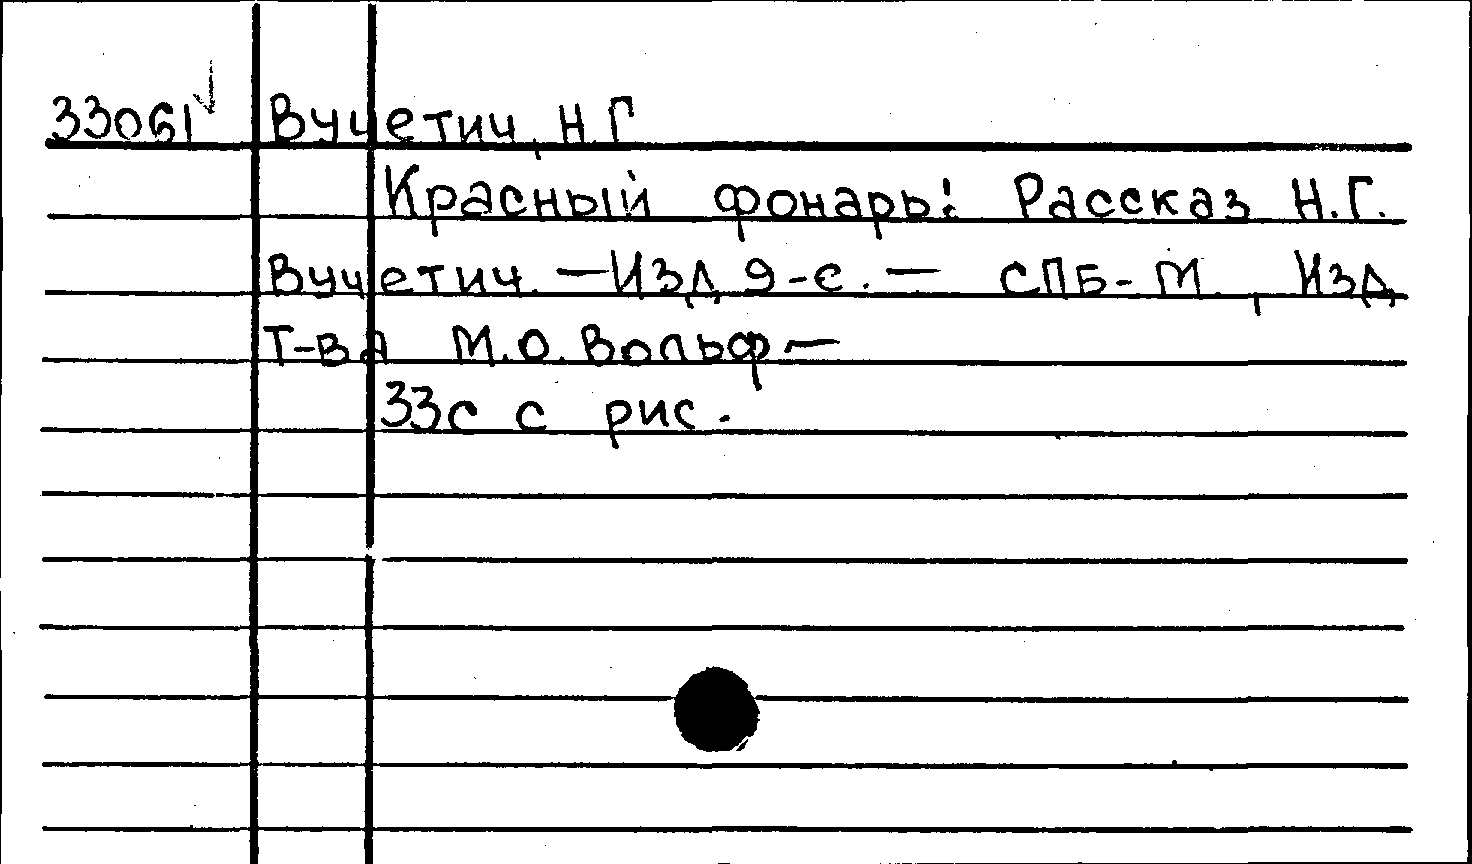 33061 Вучетич, Н.Г
Красный фонарь! Рассказ Н.Г.
Вучетич. — Изд 9-е. — СПБ-М., Изд
Т-ва М.О. Вольф —
33с с рис.